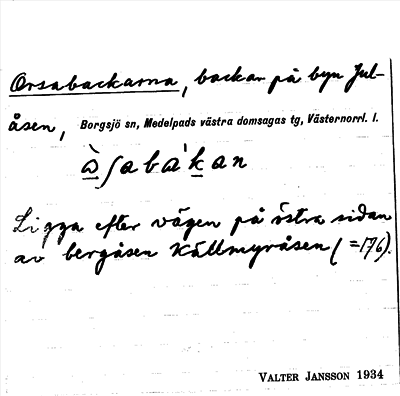 Orsabackarna, backar på byn Jul-
åsen, Borgsjö sn, Medelpads västra domsagas tg, Västernorrl. l.
ὰʃabàˈkan
Ligga efter vägen på östra sidan
av bergåsen Källmyråsen (=176).
VALTER JANSSON 1934